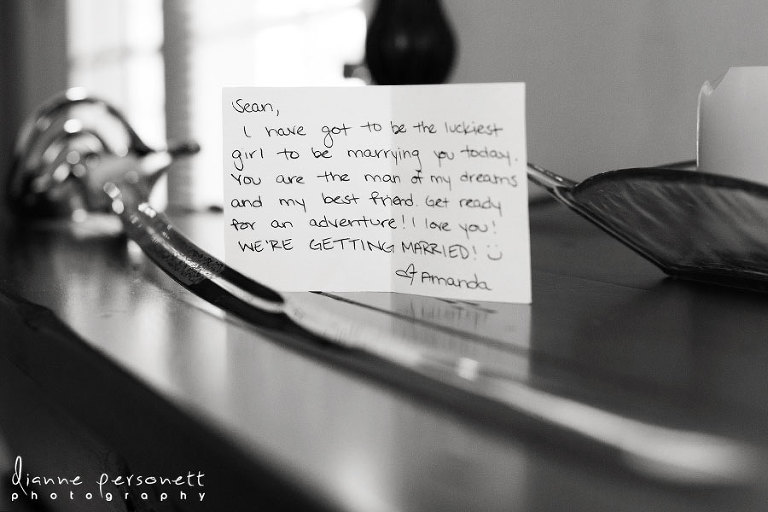 Sean,
I have got to be the luckiest
girl to be marrying you today.
You are the man of my dreams
and my best friend. Get ready
for an adventure! I love you!
WE'RE GETTING MARRIED! :)
♡ Amanda
dianne personett
photography